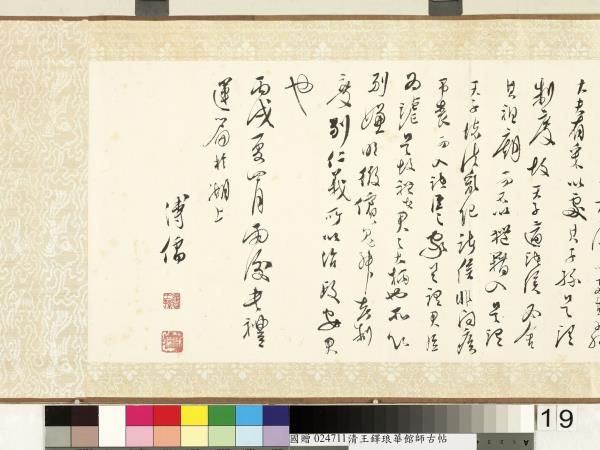 大夫有采以處其子孫是謂
制度故天子適諸侯必舍
其祖廟而不以禮籍入是謂
天子壞法亂紀諸侯非問疾
弔喪而入諸臣之家是謂君臣
為謔是故禮者君之大柄也所以
別嫌明微儐鬼神考制
度別仁義所以治政安君
也
丙戌夏四月雨後書禮
運篇於湖上
溥儒
19
國贈 024711清王鐸琅華館師古帖